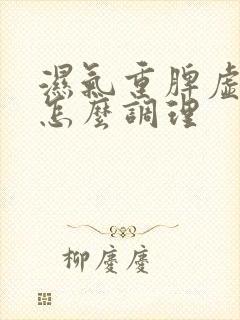 濕氣重脾虛
怎麼調理
柳慶慶